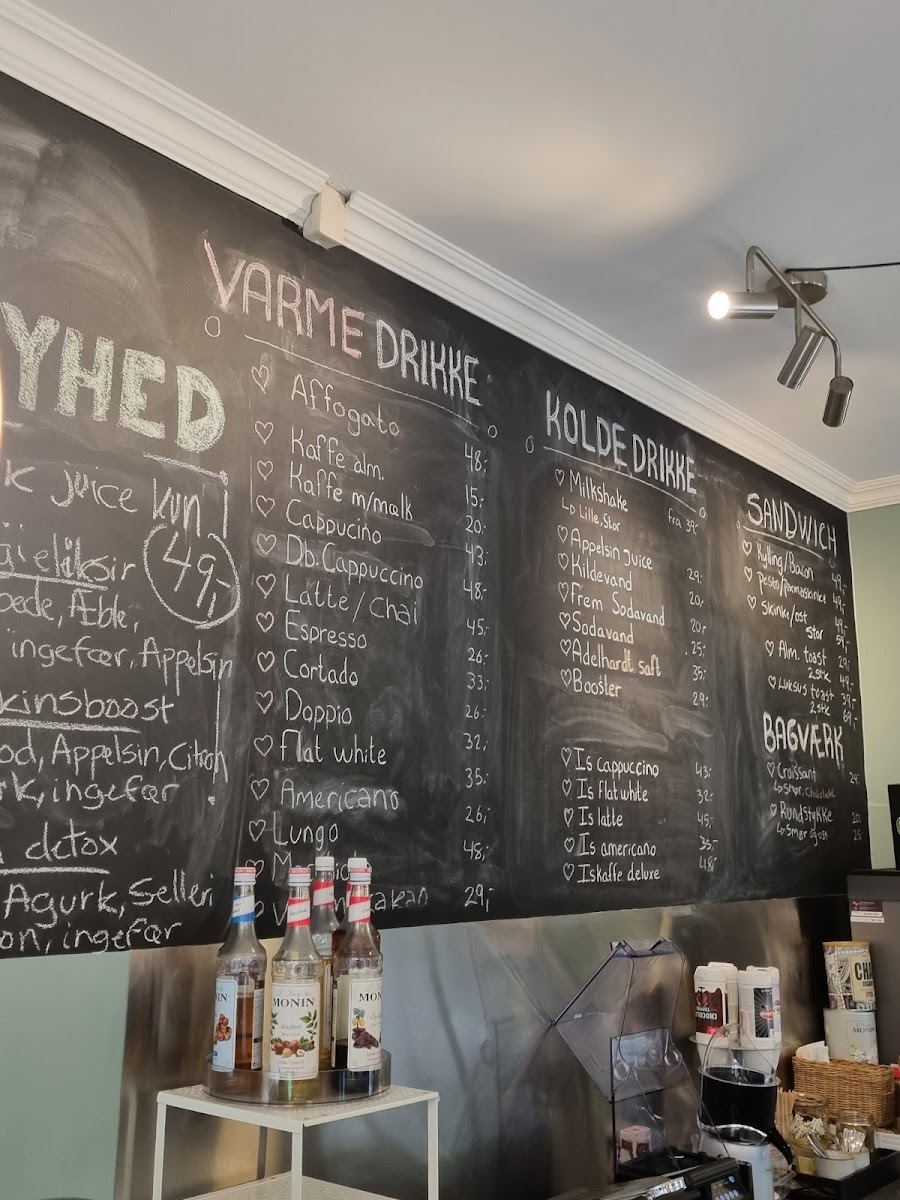 YHED
juice kun
49,-
gieliksir
bede, Æble,
ingefær, Appelsin
kinsboost
od, Appelsin, Citron
rk, ingefær
detox
Agurk, Selleri
on, ingefær
VARME DRIKKE
♡ Affogato 48,-
♡ Kaffe alm. 15,-
♡ Kaffe m/mælk 20,-
♡ Cappucino 43,-
♡ Db. Cappuccino 48,-
♡ Latte / Chai 45,-
♡ Espresso 26,-
♡ Cortado 33,-
♡ Doppio 26,-
♡ Flat white 32,-
♡ Americano 35,-
♡ Lungo 26,-
48,-
29,-
KOLDE DRIKKE
♡ Milkshake fra 39,-
↳ Lille, Stor
♡ Appelsin juice 29,-
♡ Kildevand 20,-
♡ Frem Sodavand 20,-
♡ Sodavand 25,-
♡ Adelhardt saft 35,-
♡ Booster 29,-
♡ Is cappuccino 43,-
♡ Is flat white 32,-
♡ Is latte 45,-
♡ Is americano 35,-
♡ Iskaffe deluxe 48,-
SANDWICH
♡ Kylling/Bacon 49,-
♡ pesto/parmaskinke 49,-
♡ skinke/ost 49,-
Stor 59,-
♡ Alm. toast 29,-
2 stk 49,-
♡ Luksus toast 39,-
2 stk 69,-
BAGVÆRK
♡ Croissant
↳ smør, Chokolade
♡ Rundstykke 20,-
↳ Smør og ost 25
MONIN